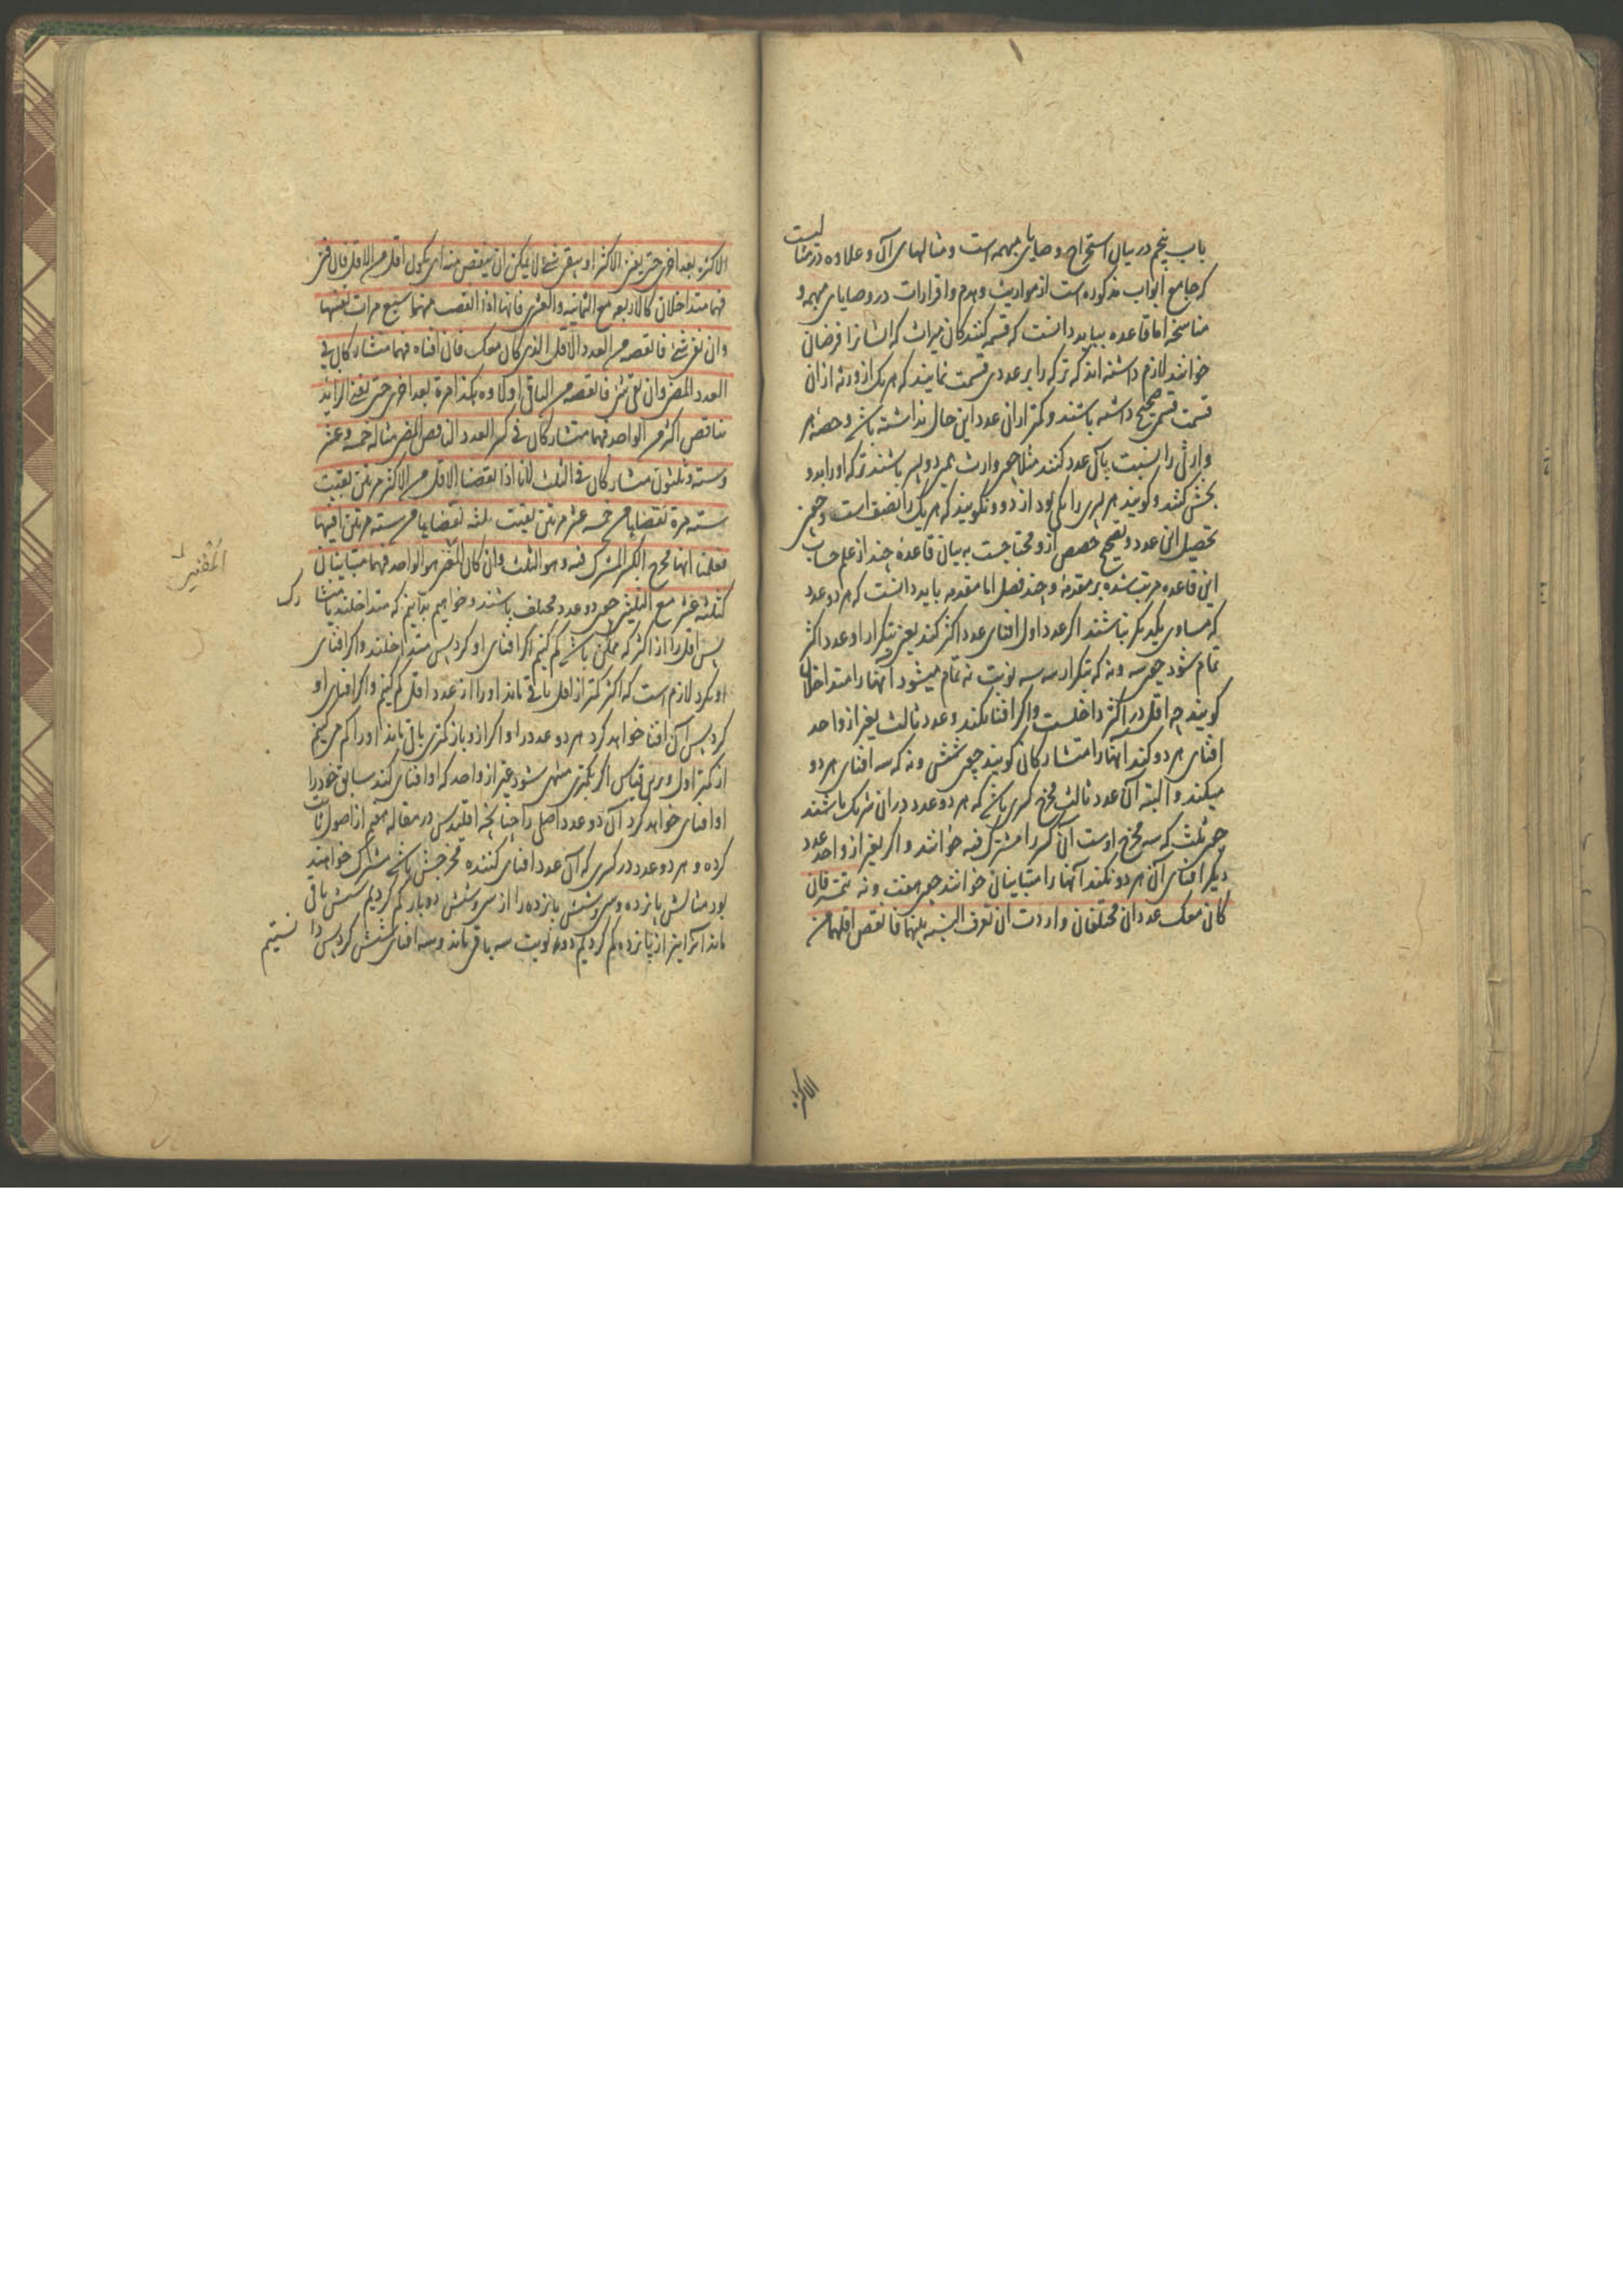 باب پنجم در بیان استخراج وصایای مبهمه است و مثالهای آن و علاوه در مثالیست
که جامع ابواب مذکوره است از مواریث و هدم و اقرارات در وصایای مبهمه و
مناسخه اما قاعده بباید دانست که قسمه کنندکان میراث که ایشانرا فرضیان
خوانند لازم داشته اند که ترکه را بر عددی قسمت نمایند که هر یک از ورثه از ان
قسمت قسمی صحیح داشته باشند و کمتر از ان عدد این حال نداشته باشد و حصهٔ هر
وارثی را نسبت بآن عدد کنند مثلا چون وارث دو پسر باشند ترکه او را بدو
بخش کنند و کویند هر پسری را یکی بود از دو و نکویند که هر یک را نصف است و چون
تحصیل این عدد و تصحیح حصص ازو محتاجست به بیان قاعدهٔ چند از علم حساب
این قاعده مرتب شده بر مقدمهٔ و چند فصل اما مقدمه باید دانست که هر دو عدد
که مساوی یکدیکر نباشند اکر عدد اول افنای عدد اکثر کند یعنی بتکرار او عدد اکثر
تمام شود چون سه و نه که بتکرار سه سه نوبت نه تمام میشود آنها را متداخلان
کویند چه اقل در اکثر داخلست و اکر افنا نکند و عدد ثالث بغیر از واحد
افنای هر دو کند آنها را متشارکان کویند چون شش و نه که سه افنای هر دو
میکند و البته آن عدد ثالث مخرج کسری باشد که هر دو عدد در ان شریک باشند
چون ثلث که سه مخرج اوست آن کسر را مشترک فیه خوانند و اکر بغیر از واحد عدد
دیکر افنای آن هر دو نکند آنها را متباینان خوانند چون هفت و نه تتمة فان
کان معک عددان مختلفان و اردت ان تعرف النسبه بینهما فانقص اقلهما من
الاکثر
الاکثر مرة بعد اخری حتی یفنی الاکثر او یبقی شیء لا یمکن ان ینقص منه ای یکون اقل من الاقل فان فنی
فهما متداخلان کالاربعه مع الثمانیه و العشرین فانها اذا انقصت منهما سبع مرات تفنیها
و ان بقی شیء فانقصه من العدد الاقل الذی کان معک فان افناه فهما متشارکان فی
العدد المفنی و ان بقی شیء فانقصه من الباقی اولا و هکذا مرة بعد اخری حتی یفنی الزاید
بناقص اکثر من الواحد فهما متشارکان فی کسر العدد الناقص المفنی مثاله خمسه و عشر
و سته و ثلثون متشارکان فی الثلث لانا اذا نقصنا الاقل من الاکثر مرتین بقیت
سته مرة نقصناها من خمسه عشر مرتین بقیت ثلثه نقصناها من سته مرتین افنیها
فعلمنا انها مخرج الکسر المشترک فیه و هو الثلث و ان کان المفنی هو الواحد فهما متباینان
المفنیین
کثلثة عشر مع الثلثین چون دو عدد مختلف باشند و خواهیم بدانیم که متداخلند یا متشارک
پس اقل را از اکثر که ممکن باشد کم کنیم اکر افنای او کرد پس متداخلند و اکر افنای
او نکرد لازم است که اکثر کمتر از اقل باقی ماند او را از عدد اقل کم کنیم و اکر افنای او
کرد پس آن افنا خواهد کرد هر دو عدد را و اکر ازو باز کمتری باقی ماند او را کم میکنیم
از کمتر اول و برین قیاس اکر بکمتری منتهی شود غیر از واحد که او افنای کند سابق خود را
او افنای خواهد کرد آن دو عدد اصل را چنانچه اقلیدس در مقاله هفتم از اصول اثبات
کرده و هر دو عدد در کسری که آن عدد افنای کننده مخرجش باشد مشترک خواهند
بود مثالش پانزده و سی و شش پانزده را از سی و شش دوبار کم کردیم شش باقی
ماند آنرا نیز از پانزده کم کردیم دو نوبت سه باقی ماند و سه افنای شش کرد پس دانستیم